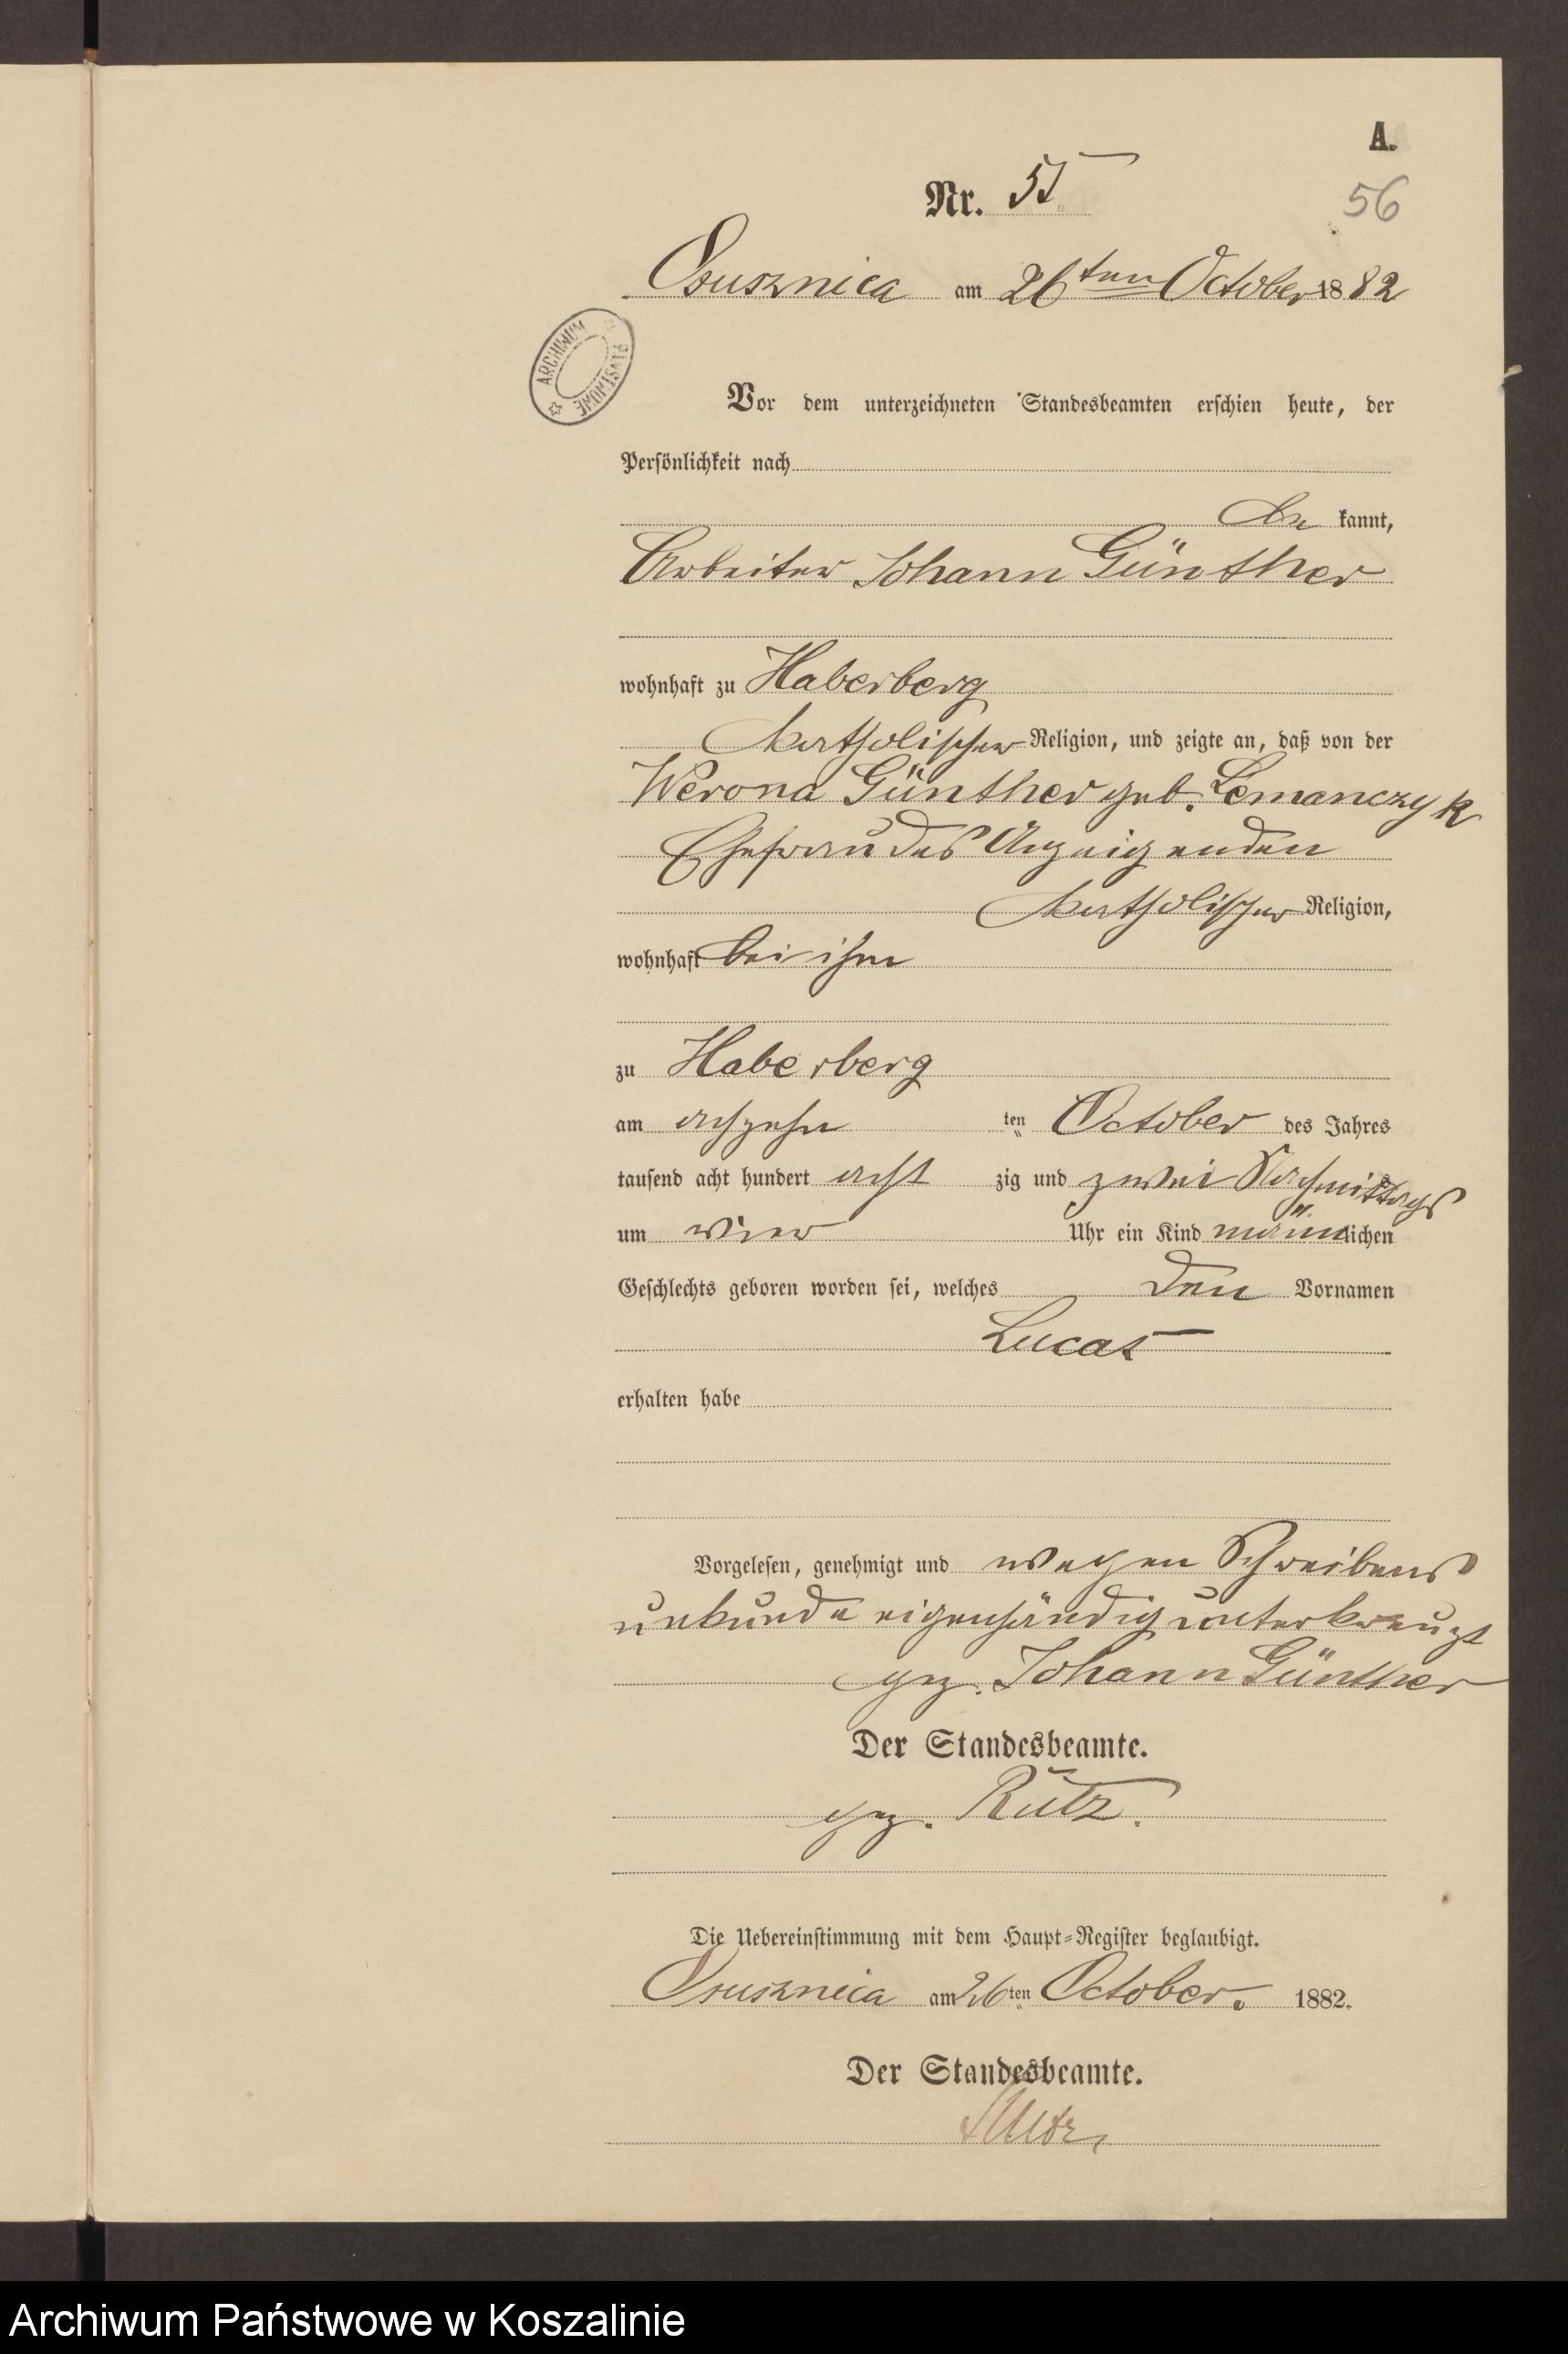 A.
Nr. 55
56
Osusznica am 26ten October 1882
ARCHIWUM PAŃSTWOWE
Vor dem unterzeichneten Standesbeamten erschien heute, der
Persönlichkeit nach
be kannt,
Arbeiter Johann Günther
wohnhaft zu Haberberg
katholischer Religion, und zeigte an, daß von der
Werona Günther geb. Lemanczyk
Ehefrau des Anzeigenden
katholischer Religion,
wohnhaft bei ihm
zu Haberberg
am achzehn ten October des Jahres
tausend acht hundert acht zig und zwei Nachmittags
um vier Uhr ein Kind männlichen
Geschlechts geboren worden sei, welches den Vornamen
Lucas
erhalten habe
Vorgelesen, genehmigt und wegen Schreibens
unkunde eigenhändig unterkreuzt
gez. Johann Günther
Der Standesbeamte.
gez. Rutz.
Die Uebereinstimmung mit dem Haupt-Register beglaubigt.
Osusznica am 26ten October. 1882.
Der Standesbeamte.
Rutz
Archiwum Państwowe w Koszalinie